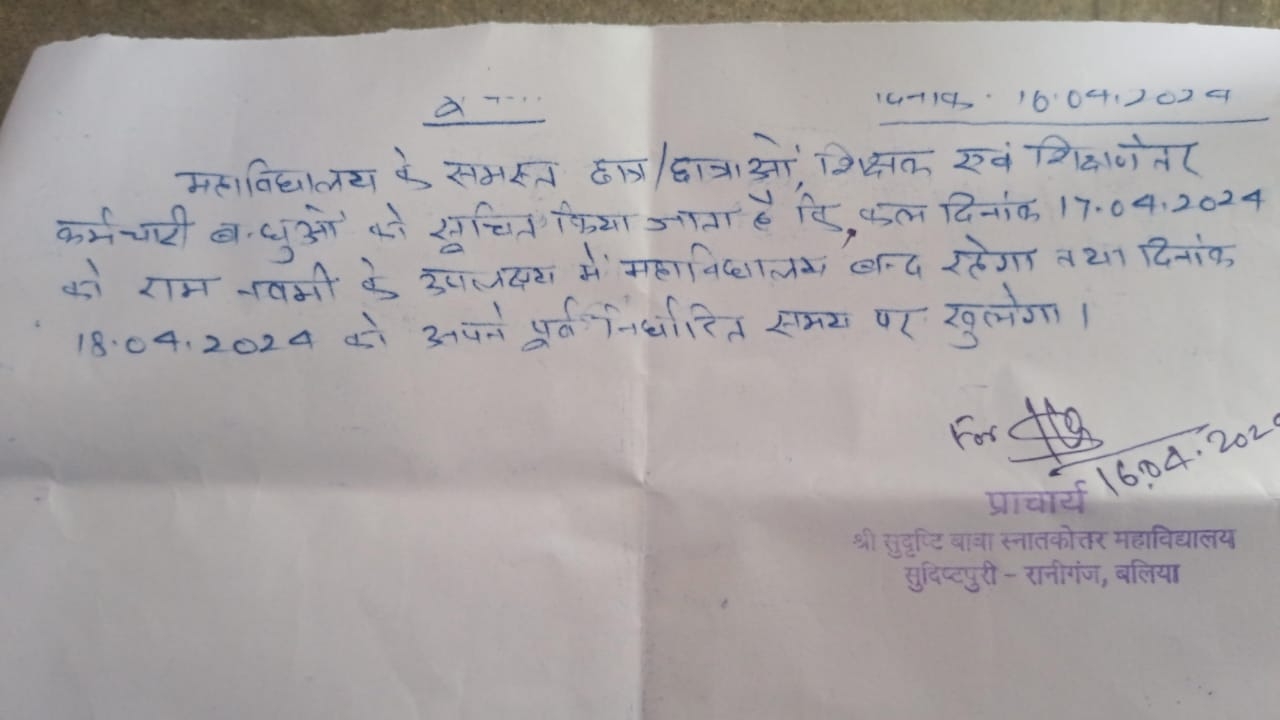 दिनांक. 16.04.2024
महाविद्यालय के समस्त छात्र/छात्राओं, शिक्षक एवं शिक्षणेतर
कर्मचारी बन्धुओं को सूचित किया जाता है कि, कल दिनांक 17.04.2024
को राम नवमी के उपलक्ष्य में महाविद्यालय बन्द रहेगा तथा दिनांक
18.04.2024 को अपने पूर्व निर्धारित समय पर खुलेगा।
For
16.04.2024
प्राचार्य
श्री सुदृष्टि बाबा स्नातकोत्तर महाविद्यालय
सुदिष्टपुरी - रानीगंज, बलिया